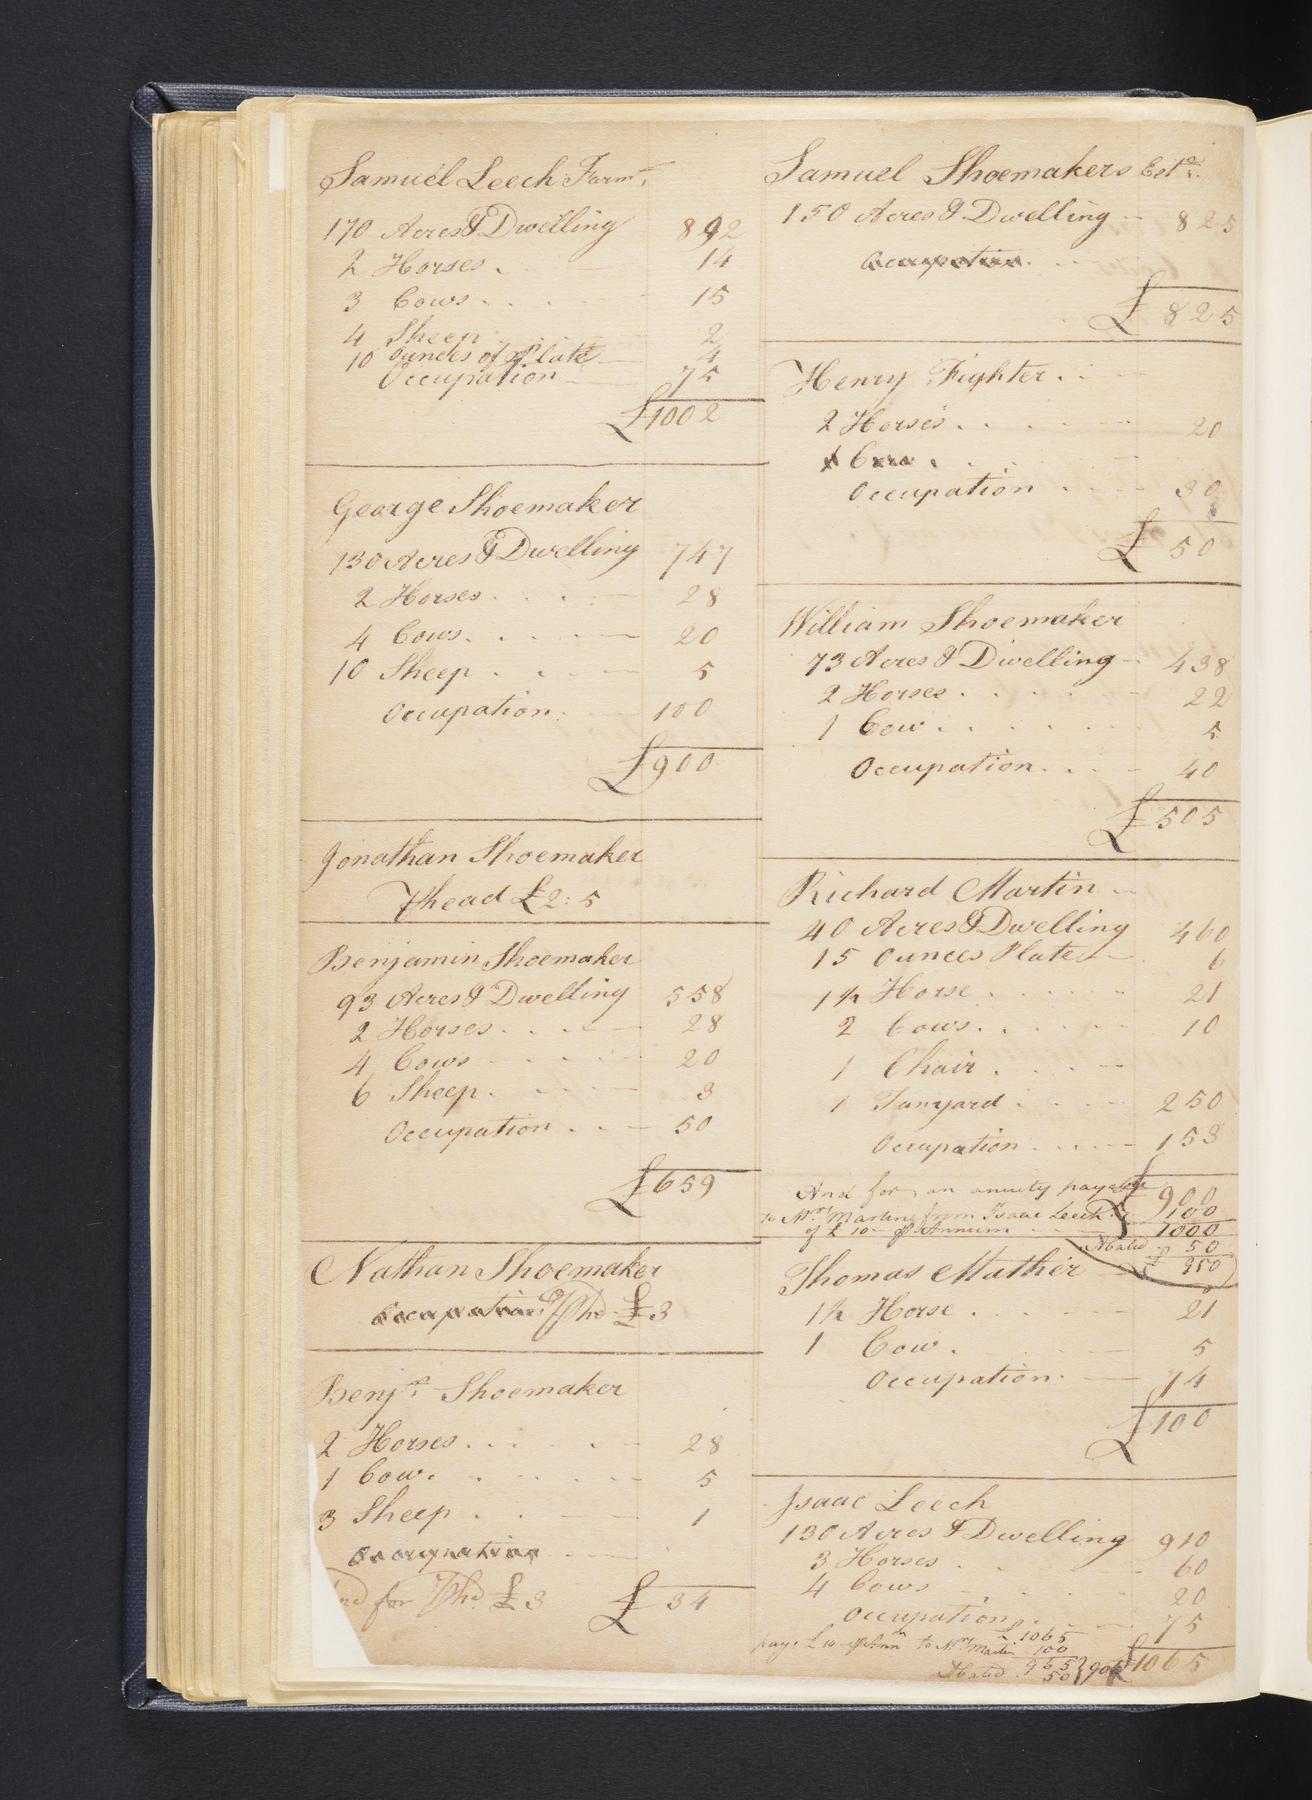 Samuel Leech Farmr.
170 Acres & Dwelling 892
2 Horses. 14
3 Cows. 15
4 Sheep 2
10 Ounces of Plate 4
Occupation 75
£1002
George Shoemaker
130 Acres & Dwelling 747
2 Horses 28
4 Cows. 20
10 Sheep 5
Occupation 100
£900
Jonathan Shoemaker
⅌ head £2:5
Benjamin Shoemaker
93 Acres & Dwelling 558
2 Horses 28
4 Cows 20
6 Sheep 3
Occupation 50
£659
Nathan Shoemaker
Occupation ⅌ hd £3
Benjn. Shoemaker
2 Horses 28
1 Cow. 5
3 Sheep 1
Occupation
and for ⅌ hd £3 £34
Samuel Shoemakers Este.
150 Acres & Dwelling 825
Occupation
£825
Henry Fighter
2 Horses 20
1 Cow
Occupation 30
£50
William Shoemaker
73 Acres & Dwelling 438
2 Horses 22
1 Cow 5
Occupation 40
£505
Richard Martin
40 Acres & Dwelling 460
15 Ounces Plate 6
1 h Horse 21
2 Cows. 10
1 Chair
1 Tanyard 250
Occupation 153
£900
And for an annuity payable
to Mrs Martin from Isaac Leech 100
of £10 ⅌ Annum 1000
Abated 50
£ 950
Thomas Mather
1 h Horse 21
1 Cow 5
Occupation 74
£100
Isaac Leech
130 Acres & Dwelling 910
3 Horses 60
4 Cows 20
Occupation 75
£1065
pays £10 ⅌ Ann to Mrs Martin £1065
100
965
Abated 50